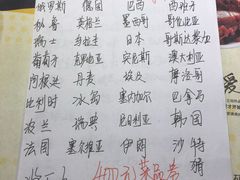 俄罗斯 德国 巴西 西班牙
秘鲁 英格兰 墨西哥 哥伦比亚
瑞士 乌拉圭 日本 哥斯达黎加
葡萄牙 克罗地亚 突尼斯 澳大利亚
阿根廷 丹麦 埃及 摩洛哥
比利时 冰岛 塞内加尔 巴拿马
波兰 瑞典 尼日利亚 韩国
法国 塞尔维亚 伊朗 沙特
400元菜品券 猜
爱